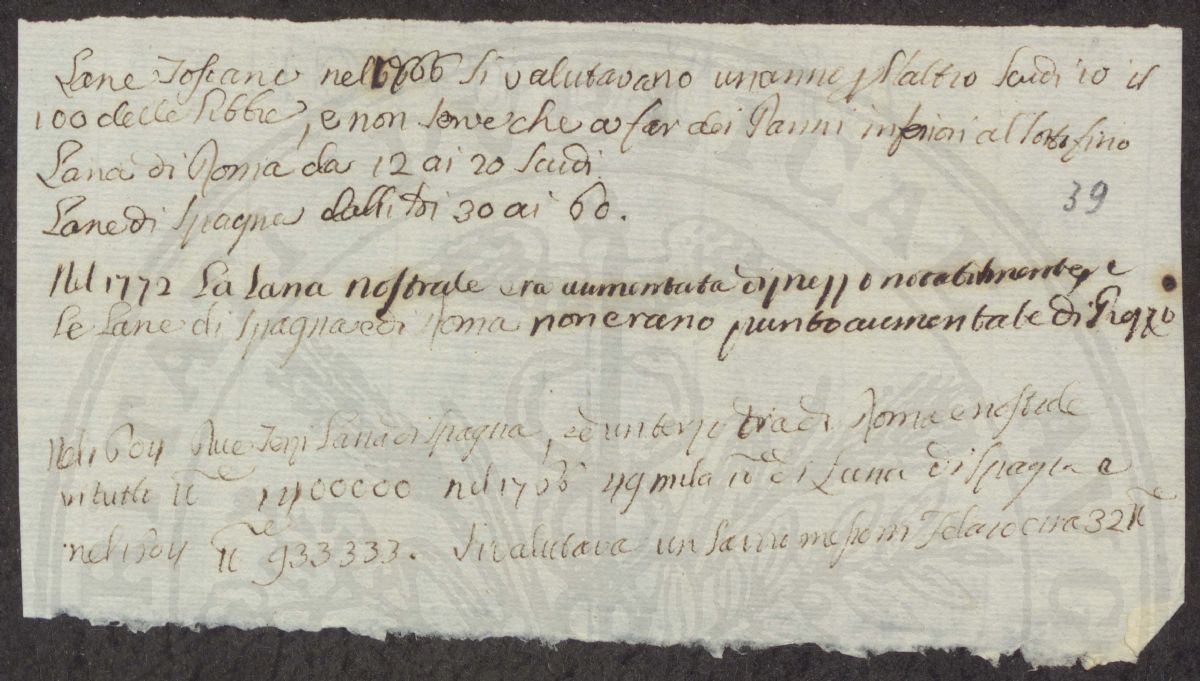 Lane Toscane nel 1606 si valutavano un anno p l'altro Scudi 10 il
100 delle Libbre, e non serve che a far dei Panni inferiori al sotto fino
Lana di Roma da 12 ai 20 Scudi
39
Lane di Spagna dalli 30 ai 60.
Nel 1772 La Lana nostrale era aumentata di prezzo notabilmente, e
Le Lane di Spagna e di Roma non erano punto aumentate di Prezzo
Nel 1604 Due Terzi Lana di Spagna, ed un terzo tra di Roma e nostrale
in tutto 1400000 nel 1706 49 mila di Lana di Spagna e
nel 1604 933333. Si valutava un Panno messo in Telaio circa 32